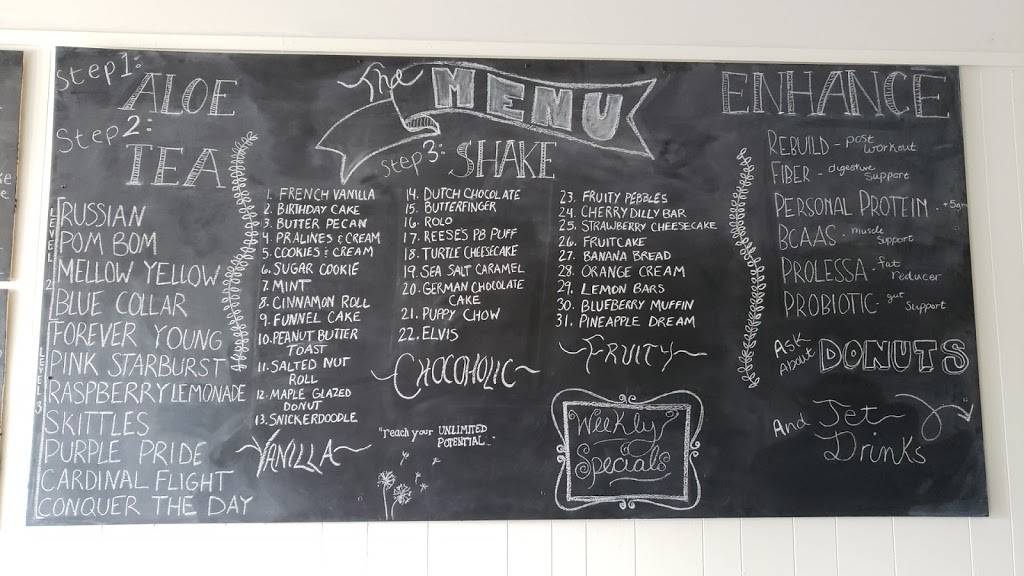 Step 1:
ALOE
Step 2:
TEA
RUSSIAN
POM BOM
MELLOW YELLOW
BLUE COLLAR
FOREVER YOUNG
PINK STARBURST
RASPBERRY LEMONADE
SKITTLES
PURPLE PRIDE
CARDINAL FLIGHT
CONQUER THE DAY
The MENU
Step 3: SHAKE
1. FRENCH VANILLA
2. BIRTHDAY CAKE
3. BUTTER PECAN
4. PRALINES & CREAM
5. COOKIES & CREAM
6. SUGAR COOKIE
7. MINT
8. CINNAMON ROLL
9. FUNNEL CAKE
10. PEANUT BUTTER
TOAST
11. SALTED NUT
ROLL
12. MAPLE GLAZED
DONUT
13. SNICKERDOODLE
VANILLA
14. DUTCH CHOCOLATE
15. BUTTERFINGER
16. ROLO
17. REESE'S PB PUFF
18. TURTLE CHEESECAKE
19. SEA SALT CARAMEL
20. GERMAN CHOCOLATE
CAKE
21. PUPPY CHOW
22. ELVIS
CHOCOHOLIC
"reach your UNLIMITED
POTENTIAL..."
23. FRUITY PEBBLES
24. CHERRY DILLY BAR
25. STRAWBERRY CHEESECAKE
26. FRUITCAKE
27. BANANA BREAD
28. ORANGE CREAM
29. LEMON BARS
30. BLUEBERRY MUFFIN
31. PINEAPPLE DREAM
FRUITY
Weekly
Specials
ENHANCE
REBUILD - post workout
FIBER - digestive support
PERSONAL PROTEIN - +5gm
BCAAS - muscle support
PROLESSA - fat reducer
PROBIOTIC - gut support
ASK ABOUT DONUTS
And Jet
Drinks